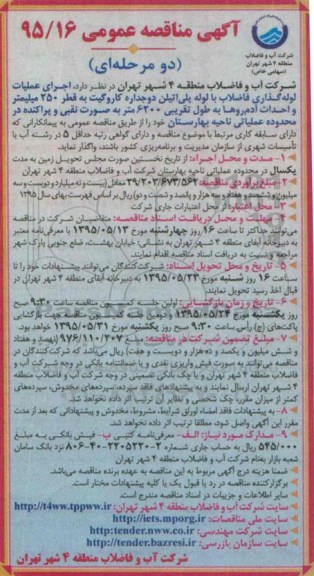 شرکت آب و فاضلاب
منطقه ۴ شهر تهران
(سهامی خاص)
آگهی مناقصه عمومی ۹۵/۱۶
(دو مرحله‌ای)
شرکت آب و فاضلاب منطقه ۴ شهر تهران در نظر دارد، اجرای عملیات
لوله‌گذاری فاضلاب با لوله پلی‌اتیلن دوجداره کاروگیت به قطر ۲۵۰ میلیمتر
و احداث آدم‌روها به طول تقریبی ۶۲۰۰ متر به صورت نقبی و پراکنده در
محدوده عملیاتی ناحیه بهارستان خود را از طریق مناقصه عمومی به پیمانکارانی که
دارای سابقه کاری مرتبط با موضوع مناقصه و دارای گواهی رتبه حداقل ۵ در رشته آب یا
تأسیسات شهری از سازمان مدیریت و برنامه‌ریزی کشور باشند، واگذار نماید.
۱- مدت و محل اجرا: از تاریخ نخستین صورت مجلس تحویل زمین به مدت
یکسال در محدوده عملیاتی ناحیه بهارستان شرکت آب و فاضلاب منطقه ۴ شهر تهران
۲- مبلغ برآوردی مناقصه: ۳۹/۲۰۳/۶۷۳/۵۶۲
۳- محل اعتبار: از محل اعتبارات جاری شرکت
۴- مهلت و محل دریافت اسناد مناقصه: متقاضیان شرکت در مناقصه
می‌توانند حداکثر تا ساعت ۱۶ روز چهارشنبه مورخ ۱۳۹۵/۰۵/۱۳ با معرفی‌نامه معتبر
به دبیرخانه آبفای منطقه ۴ شهر تهران به نشانی: خیابان بهشت، ضلع جنوبی پارک شهر
مراجعه و نسبت به دریافت اسناد مناقصه اقدام نمایند.
۵- تاریخ و محل تحویل اسناد: شرکت‌کنندگان می‌توانند پیشنهادات خود را تا
ساعت ۱۶ روز شنبه مورخ ۱۳۹۵/۰۵/۲۳ به دبیرخانه آبفای منطقه ۴ شهر تهران در
قبال اخذ رسید تحویل نمایند.
۶- تاریخ و زمان بازگشایی: اولین جلسه کمیسیون مناقصه ساعت ۹:۳۰ صبح
روز یکشنبه مورخ ۱۳۹۵/۰۵/۲۴ و دومین جلسه کمیسیون مناقصه جهت بازگشایی
پاکت‌های (ج) رأس ساعت ۹:۳۰ صبح روز یکشنبه مورخ ۱۳۹۵/۰۵/۳۱ خواهد بود.
۷- مبلغ تضمین شرکت در مناقصه: مبلغ ۹۷۶/۱۱۰/۲۰۷ (نهصد و هفتاد
و شش میلیون و یکصد و ده‌هزار و دویست و هفت) ریال می‌باشد که شرکت‌کنندگان در
مناقصه می‌توانند به صورت فیش واریزی نقدی و یا ضمانتنامه بانکی در وجه شرکت آب و
فاضلاب منطقه ۴ شهر تهران و یا چک بانکی تضمینی در وجه شرکت آب و فاضلاب منطقه
۴ شهر تهران ارسال نمایند و به پیشنهادهای فاقد سپرده، سپرده‌های مخدوش، سپرده‌های
کمتر از میزان مقرر، چک شخصی و نظایر آن ترتیب اثر داده نخواهد شد.
۸- به پیشنهادات فاقد امضاء اوراق شرایط، مشروط، مخدوش و پیشنهاداتی که بعد از مدت
مقرر این آگهی واصل شود، مطلقا ترتیب اثر داده نخواهد شد.
۹- مدارک مورد نیاز: الف- معرفی‌نامه کتبی ب- فیش بانکی به مبلغ
۵۴۵/۰۰۰ ریال به حساب جاری شماره نزد بانک سامان
شعبه بازار بهنام شرکت آب و فاضلاب منطقه ۴ شهر تهران
ضمنا هزینه درج آگهی مربوط به این مناقصه به عهده برنده مناقصه می‌باشد.
برگزارکننده مناقصه در رد یا قبول یک یا کلیه پیشنهادات مختار است.
سایر اطلاعات و جزییات در اسناد مناقصه مندرج است.
سایت شرکت آب و فاضلاب منطقه ۴ شهر تهران: http://t4ww.tppww.ir
سایت ملی مناقصات: http://iets.mporg.ir
سایت شرکت مهندسی: http:tender.nww.co.ir
سایت سازمان بازرسی: http://tender.bazresi.ir
شرکت آب و فاضلاب منطقه ۴ شهر تهران